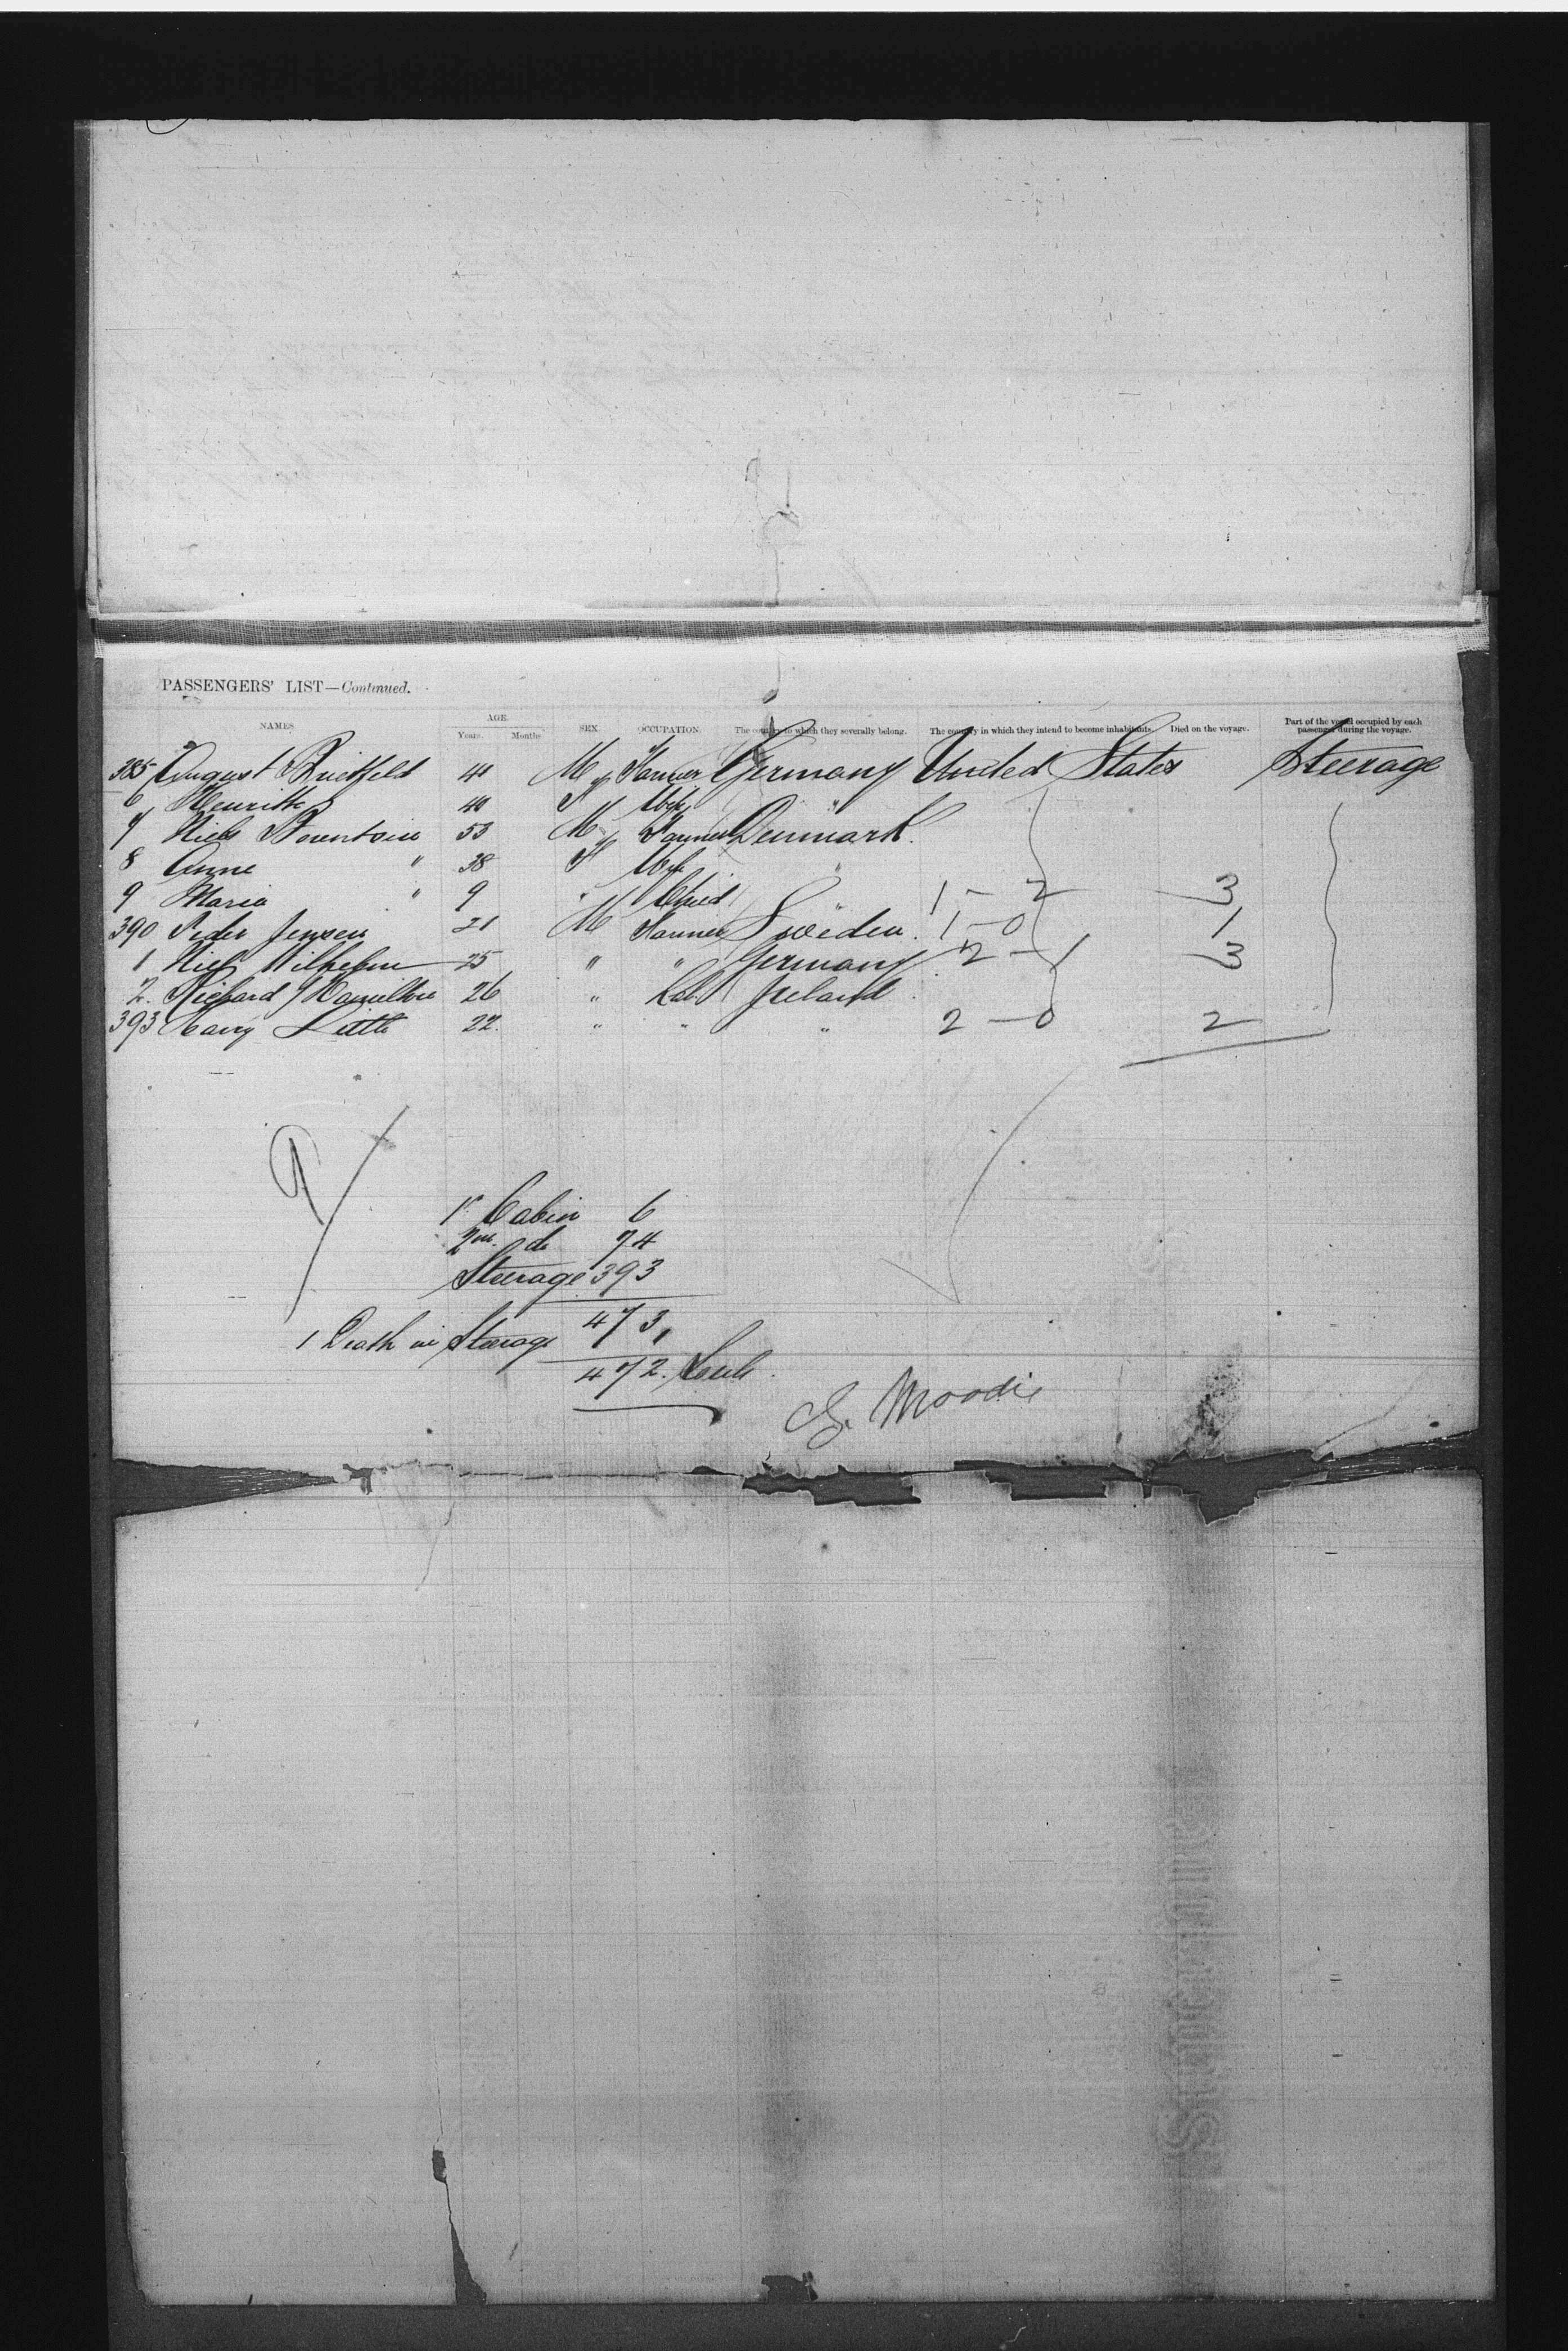 PASSENGERS' LIST—Continued.
NAMES AGE. Years. Months SEX OCCUPATION. The country to which they severally belong. The country in which they intend to become inhabitants. Died on the voyage. Part of the vessel occupied by each passenger during the voyage.
385 August 41 M Farmer Germany United States Steerage
6 40 F Wife "
7 Niels 53 M Farmer Denmark.
8 Anne " 38 F Wife "
9 Maria " 9 " Child " 1 - 2 3
390 Peder Jensen 21 M Farmer Sweden. 1 - 0 1
1 Wilhelm 25 " " Germany 2 - 1 3
2. Richard Hamilton 26 " Lab Ireland
393 Harry Little 22. " " " 2 - 0 2
1st Cabin 6
2nd do 74
Steerage 393
473
1 Death in Steerage 1
472. Souls.
Moodie